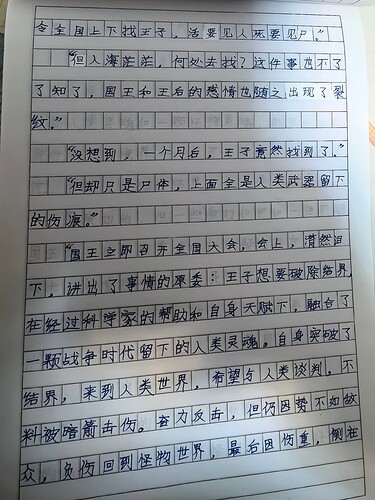 令全国上下找王子，活要见人死要见尸。”
“但人海茫茫，何处去找？这件事也不了
了知了，国王和王后的感情也随之出现了裂
纹。”
“没想到，一个月后，王子竟然找到了。”
“但却只是尸体，上面全是人类武器留下
的伤痕。”
“国王立即召开全国大会，会上，潸然泪
下，讲出了事情的原委：王子想要破除结界，
在经过科学家的帮助和自身天赋下，融合了
一颗战争时代留下的人类灵魂，自身突破了
结界，来到人类世界，希望与人类谈判，不
料被暗箭击伤。奋力反击，但仍因势不如敌
众，负伤回到怪物世界，最后因伤重，倒在